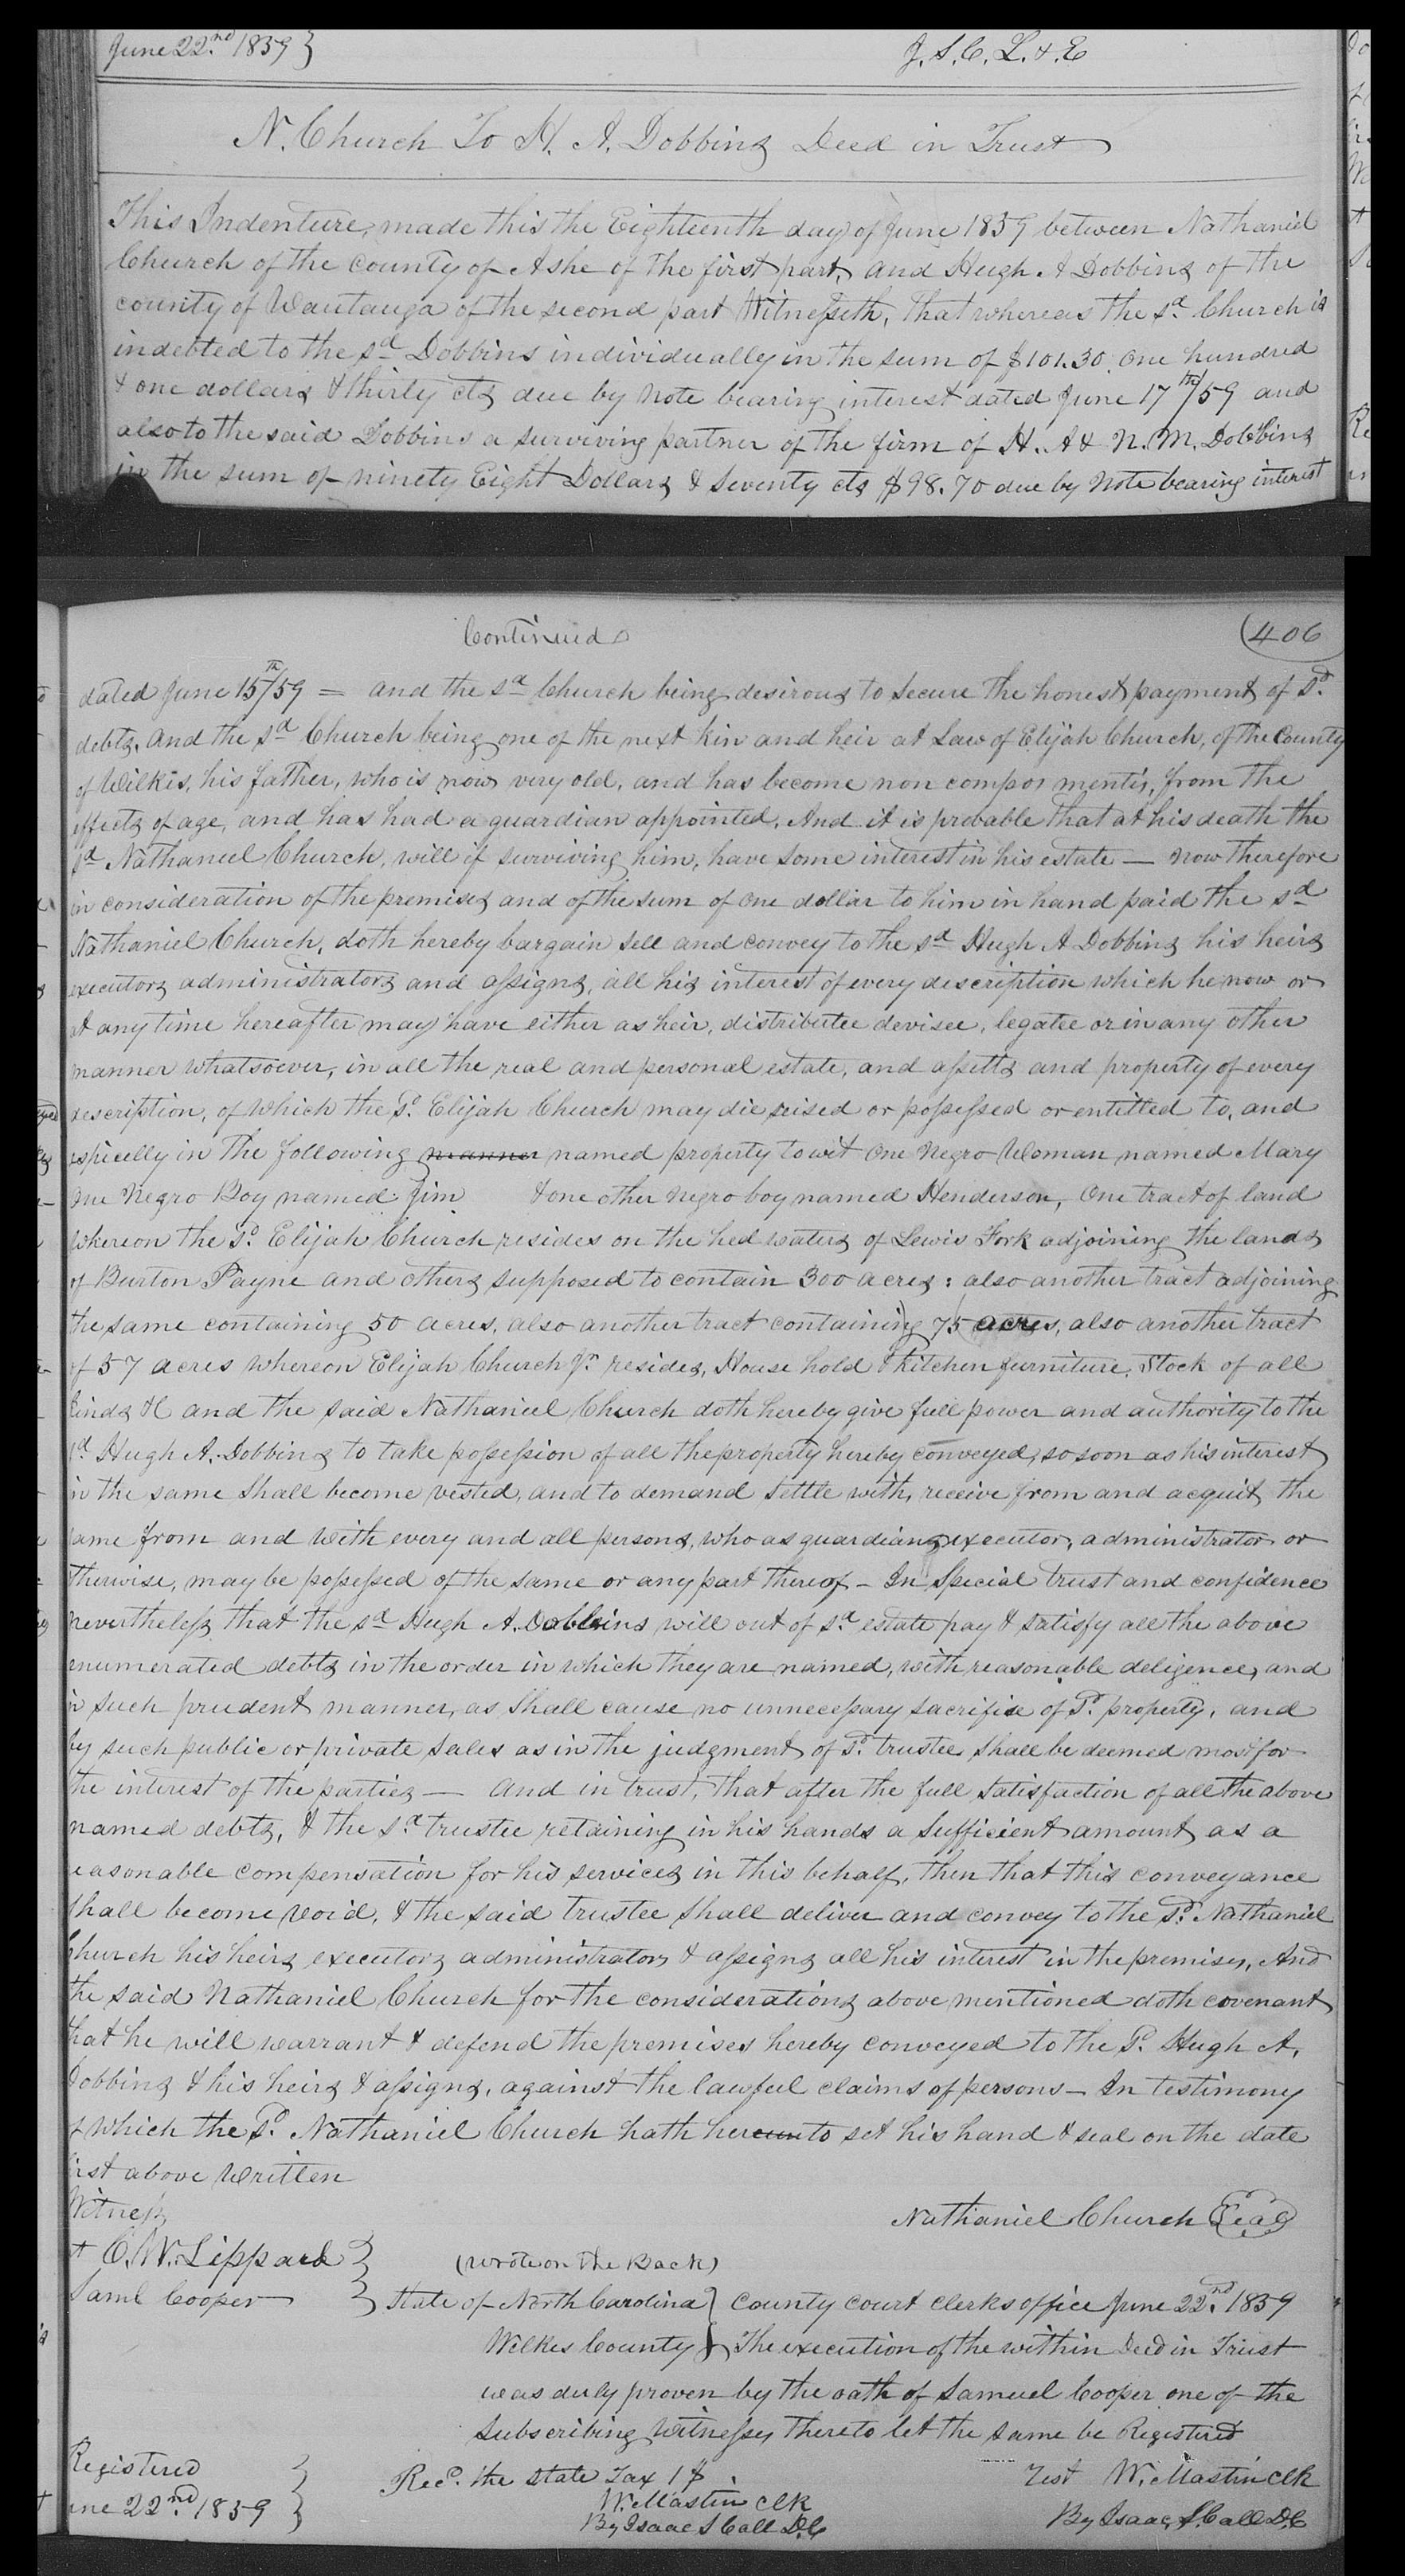 June 22.nd 1859 }
J. S. C. L. & E
N. Church To H. A. Dobbins Deed in Trust
This Indenture, made this the Eighteenth day of June 1859 between Nathaniel
Church of the county of Ashe of the first part, and Hugh A Dobbins of the
county of Wautauga of the second part Witnesseth, that whereas the sd Church is
indebted to the sd Dobbins individually in the sum of $101.30. One hundred
& one dollars & thirty cts due by Note bearing interest dated June 17th/59 and
also to the said Dobbins a surviving partner of the firm of H. A & N. M. Dobbins
in the sum of ninety Eight Dollars & Seventy cts $98.70 due by Note bearing interest
Continued
(406
dated June 15th/59 = and the sd Church being desirous to secure the honest payment of sd
debts. And the sd Church being one of the next kin and heir at Law of Elijah Church, of the County
of Wilkis, his father, who is now very old, and has become non compos mentis, from the
effects of age, and has had a guardian appointed. And it is probable that at his death the
sd Nathaniel Church, will if surviving him, have some interest in his estate — Now therefore
in consideration of the premises and of the sum of one dollar to him in hand paid the sd
Nathaniel Church, doth hereby bargain sell and convey to the sd Hugh A Dobbins his heirs
executors administrators and assigns, all his interest of every description which he now or
at any time hereafter may have either as heir, distributee devisee, legatee or in any other
manner whatsoever, in all the real and personal estate, and assetts and property of every
description, of which the sd Elijah Church may die seised or possessed or entitled to, and
espicelly in the following manner named property to wit One Negro Woman named Mary
One Negro Boy named Jim & one other negro boy named Henderson, One tract of land
whereon the sd Elijah Church resides on the hed waters of Lewis Fork adjoining the lands
of Burton Payne and others supposed to contain 300 acres: also another tract adjoining
the same containing 50 acres, also another tract containing 75 acres, also another tract
of 57 acres whereon Elijah Church Jr. resides, House hold & kitchen furniture, Stock of all
kinds &C and the said Nathaniel Church doth hereby give full power and authority to the
sd Hugh A. Dobbins to take possession of all the property hereby conveyed, so soon as his interest
in the same Shall become vested, and to demand settle with, receive from and acquit the
same from and with every and all persons, who as guardians, executor, administrator or
otherwise, may be possessed of the same or any part thereof – In Special trust and confidence
nevertheless that the sd Hugh A. Dobbins will out of sd estate pay & satisfy all the above
enumerated debts in the order in which they are named, with reasonable deligence, and
in such prudent manner, as Shall cause no unnecessary sacrifice of sd property, and
by such public or private sales as in the judgment of sd trustee shall be deemed most for
the interest of the parties — And in trust, that after the full satisfaction of all the above
named debts, & the sd trustee retaining in his hands a sufficient amount as a
reasonable compensation for his services in this behalf, then that this conveyance
shall become void, & the said trustee shall deliver and convey to the sd Nathaniel
Church his heirs executors administrators & assigns all his interest in the premises, And
the said Nathaniel Church for the considerations above mentioned doth covenant
that he will warrant & defend the premises hereby conveyed to the sd Hugh A.
Dobbins & his heirs & assigns, against the lawful claims of persons – In testimony
of which the sd Nathaniel Church hath hereunto set his hand & seal on the date
first above Written
Witness
Nathaniel Church Seal
C. W. Lippard }
(wrote on the Back)
Saml Cooper }
State of North Carolina } County court clerks office June 22.nd 1859
Wilkes County } The execution of the within Deed in Trust
was duly proven by the oath of Samuel Cooper one of the
Subscribing Witnesses thereto let the same be Registered
Registered }
Recd. the state Tax 1$
Test W. Mastin clk
June 22nd. 1859 }
W. Mastin clk
By Isaac S Call D.C
By Isaac S. Call D.C